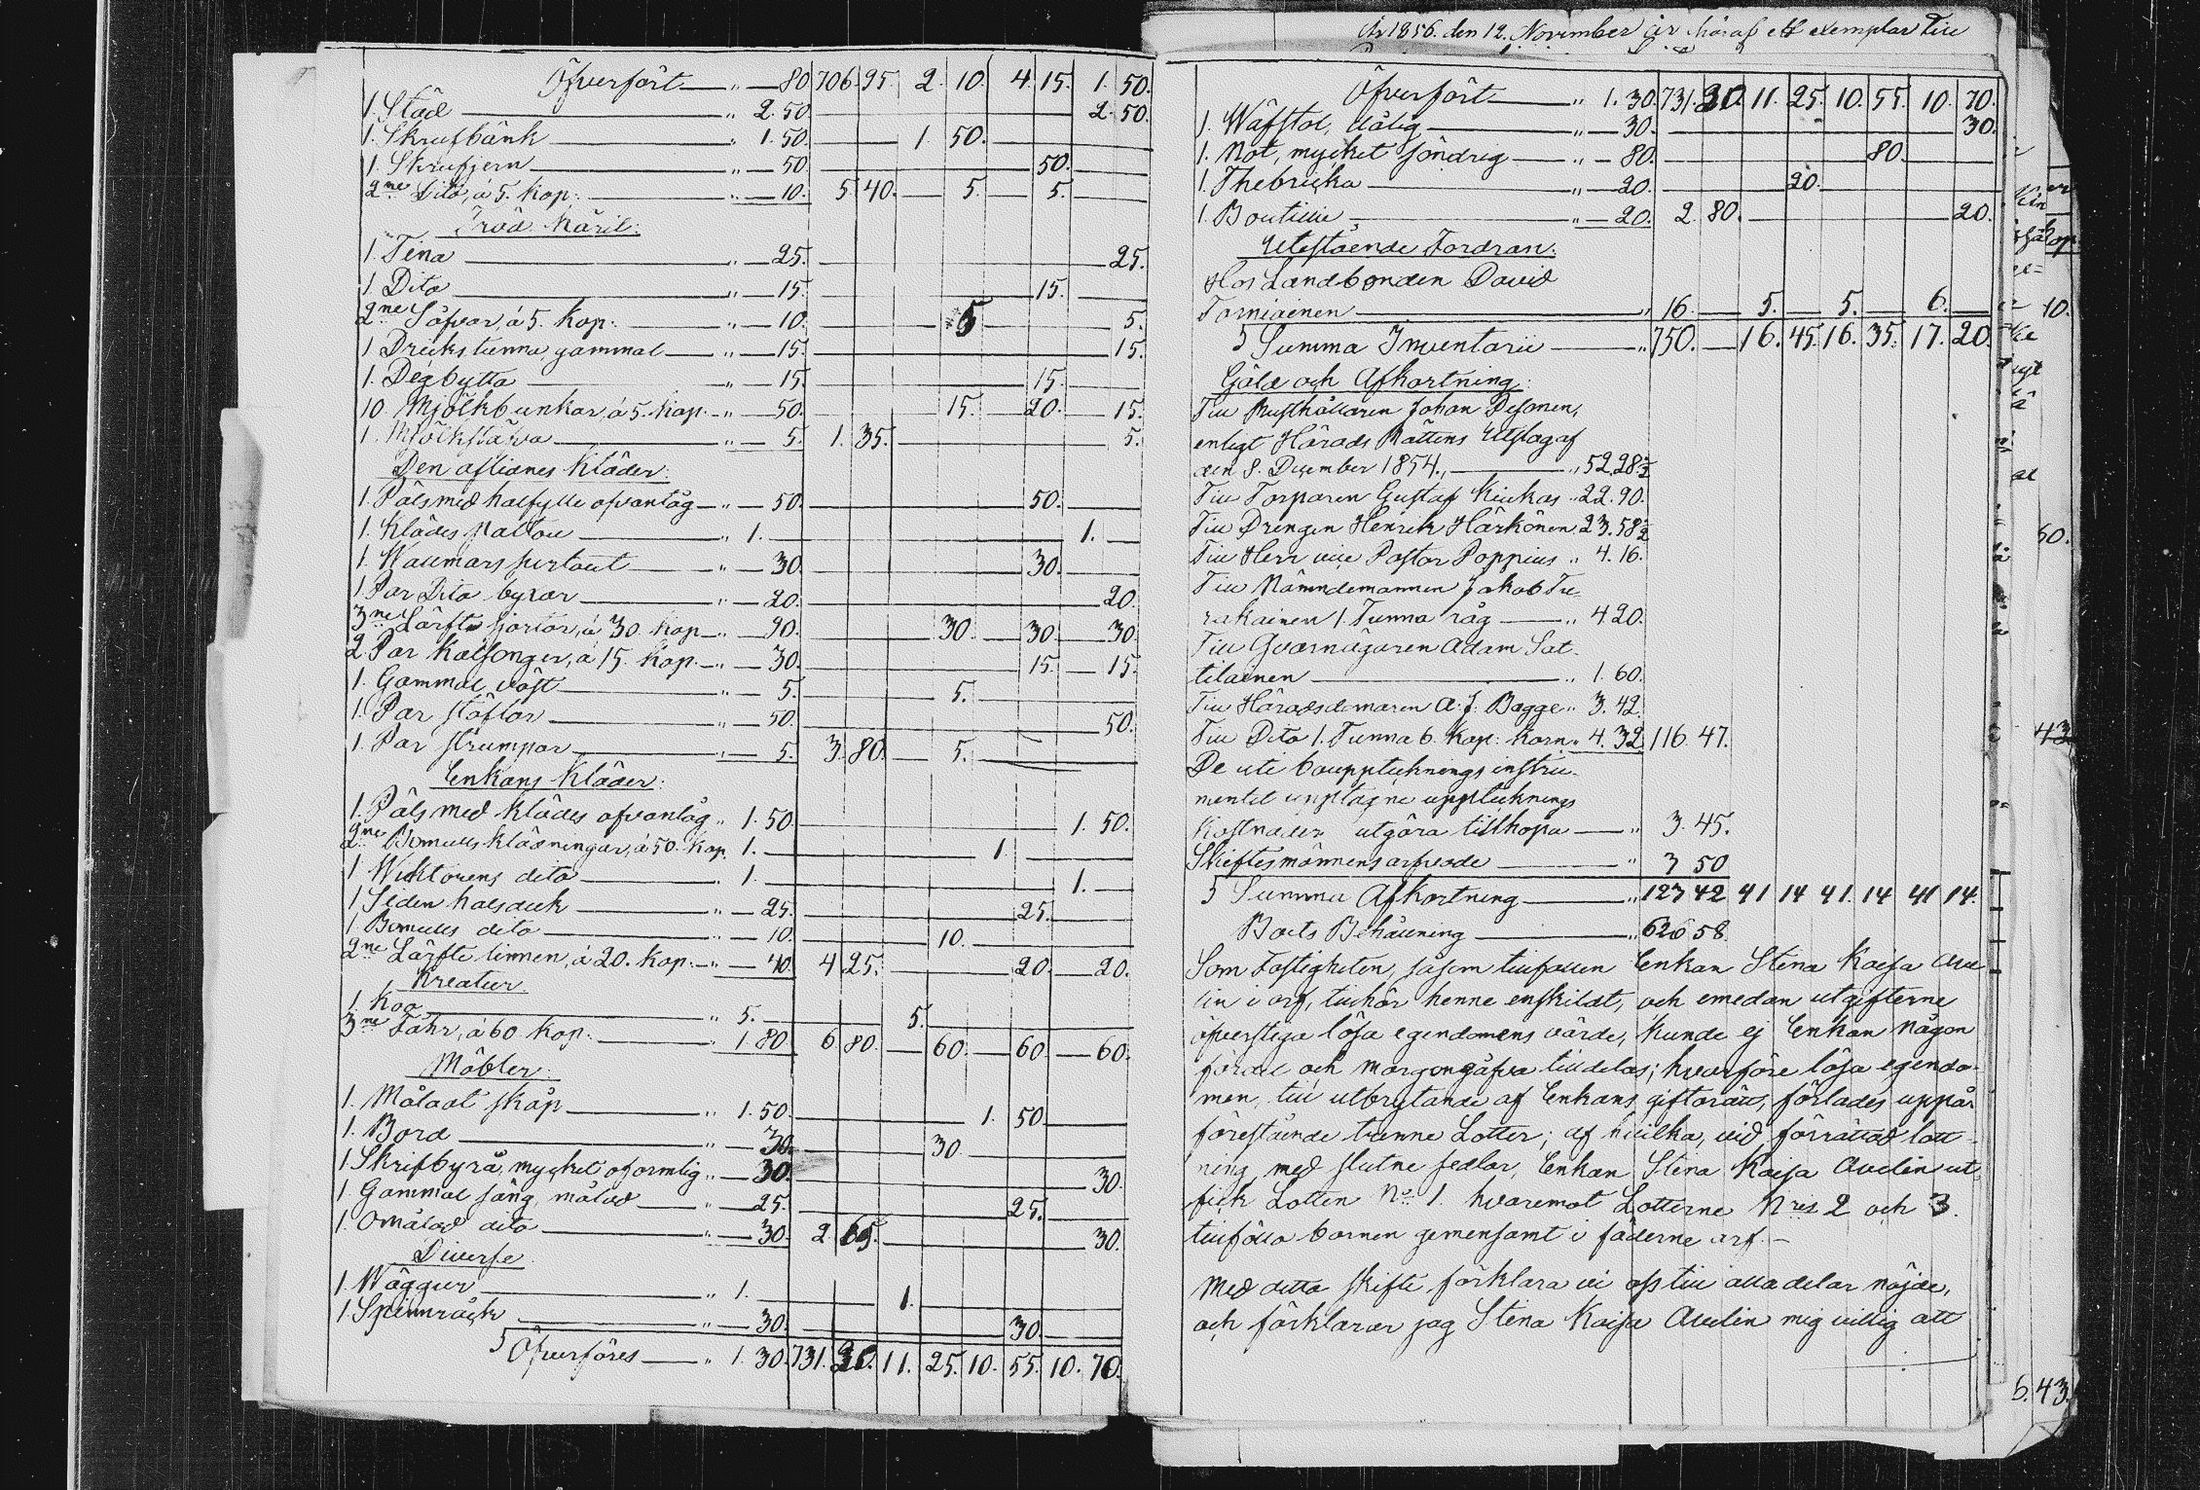 Öfverfört — " — 80. 706. 95. 2. 10. 4. 15. 1. 50.
1. Städ — " 2. 50. 2. 50.
1. Skrufbänk — " 1. 50. 1. 50.
1. Skrufjern — " — 50. 50.
2ne Dito, á 5. Kop: — " — 10. 5. 40. 5. 5.
Träd Käril:
1. Tina — " — 25. 25.
1. Dito — " — 15. 15.
2ne Såfvar, á 5. Kop: — " — 10. 5 5.
1 Drickstunna, gammal — " — 15. 15.
1. Degbytta — " — 15. 15.
10. Mjölkbunkar, á 5. Kop. — " — 50. 15. 20. 15.
1. Mjölkstäfva — " — 5. 1. 35. 5.
Den aflidnes Kläder:
1. Päls med halfylle ofvantåg — " — 50. 50.
1. Klädes Paltou — " 1. 1.
1. Wallmars surtout — " — 30. 30.
1 Par Dito byxor — " — 20. 20.
3ne Lärfts skjortor, á 30. Kop — " — 90. 30. 30. 30.
2. Par Kalsonger, á 15. Kop. — " — 30. 15. 15.
1. Gammal väst — " — 5. 5.
1. Par stöflar — " — 50. 50.
1. Par strumpor — " — 5. 3. 80. 5.
Enkans Kläder:
1. Päls med klädes ofvantåg " 1. 50. 1. 50.
2ne Bomulls klädningar, á 50. Kop. 1. 1.
1 Wicktorens dito — " 1. 1.
1 Siden halsduk — " — 25. 25.
1 Bomulls dito — " — 10. 10.
2ne Lärfts linnen, á 20. Kop. — " — 40 4 25. 20. 20.
Kreatur.
1. Koo — " 5. 5.
3ne Fåhr, á 60 Kop: — " 1. 80 6. 80. 60. 60. 60.
Möbler:
1. Måladt skåp — " 1. 50. 1. 50.
1. Bord — " — 30. 30.
1. Skrifbyrå, mycket oformlig " — 30. 30.
1. Gammal säng, målad — " — 25. 25.
1. Omålad dito — " — 30. 2 65. 30.
Diverse
1. Wäggur — " 1. 1.
1. Spinnråck — " — 30. 30.
Öfverföres — " 1. 30. 731. 20. 11. 25. 10. 55. 10. 70.
År 1856. den 12. November är häraf ett exemplar till
Öfverfört — " 1. 30. 731. 20. 11. 25. 10. 55. 10. 70.
1. Wäfstol, dålig — " — 30. 30.
1. Not, mycket söndrig — " — 80. 80.
1. Thebricka — " — 20. 20.
1. Boutillie — " — 20. 2. 80. 20.
Utestående Fordran:
Hos Landbonden David
Torniainen — " 16. — 5. — 5. — 6. —
Summa Inventarii — " 750. — 16. 45. 16. 35. 17. 20.
Gäld och Afkortning:
Till Rusthållaren Johan Pesonen,
enligt Härads Rättens Utslag af
den 8. December 1854. — " 52.28½
Till Torparen Gustaf Kiukas " 22. 90.
Till Drengen Henrik Härkönen 23. 58½
Till Herr vice Pastor Poppius " 4. 16.
Till Nämndemannen Jakob Tu-
rakainen 1. Tunna råg — " 4 20.
Till Qvarnägaren Adam Sat-
tilainen — " 1. 60.
Till Häradsdomaren A. J. Bagge " 3. 42.
Till Dito 1. Tunna 6. Kap: Korn " 4. 32. 116. 47.
De uti bouppteknings instru-
mentet upptagne uppteknings
kostnader utgöra tillhopa — " 3. 45.
Skiftesmännens arfvode — " 3 50
Summa Afkortning — " 123 42 41 14 41. 14 41 14.
Boets Behållning — " 626 58.
Som Fastigheten, såsom tillfallen Enkan Stina Kaisa Ave-
lin i arf, tillhör henne enskildt, och emedan utgifterne
öfverstiga lösa egendomens värde, kunde ej Enkan någon
fördel och morgongåfva tilldelas; hvarföre lösa egendo-
men, till utbrytande af Enkans giftorätt, förlades uppå
förestående trenne Lotter; af hvilka, vid förrättad lott-
ning med slutne sedlar, Enkan Stina Kaisa Avelin ut-
fick Lotten No 1. hvaremot Lotterne Nres 2 och 3.
tillföllo barnen gemensamt i fäderne arf. —
Med detta skifte förklara vi oss till alla delar nöjde,
och förklarar jag Stina Kaisa Avelin mig villig att
10.
50.
43
6. 43.